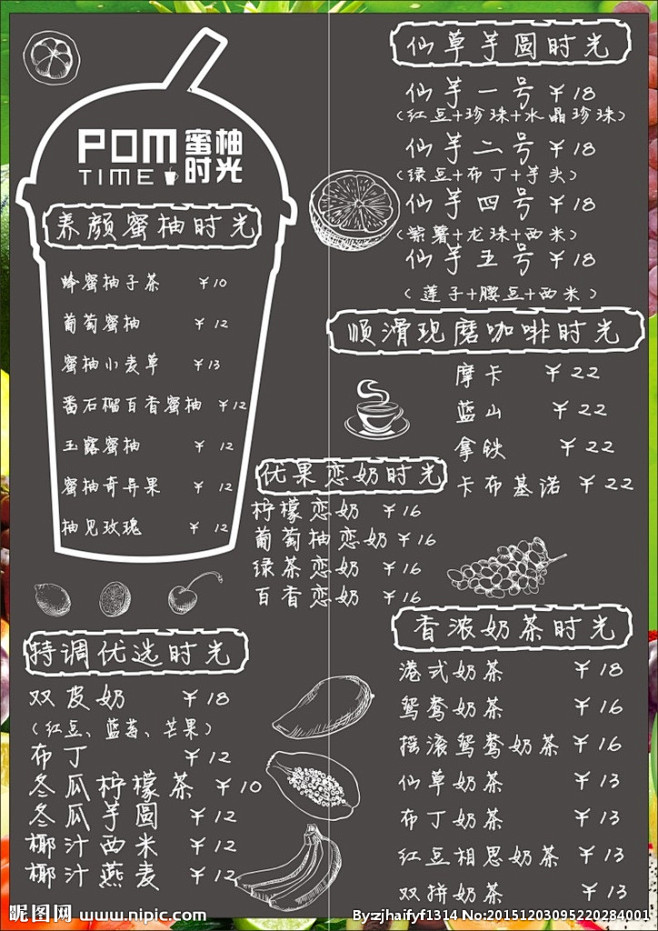 POM 蜜柚
TIME 时光
养颜蜜柚时光
蜂蜜柚子茶 ¥10
葡萄蜜柚 ¥12
蜜柚小麦草 ¥13
番石榴百香蜜柚 ¥12
玉露蜜柚 ¥12
蜜柚奇异果 ¥12
柚见玫瑰 ¥12
仙草芋圆时光
仙芋一号 ¥18
(红豆+珍珠+水晶珍珠)
仙芋二号 ¥18
(绿豆+布丁+芋头)
仙芋四号 ¥18
(紫薯+龙珠+西米)
仙芋五号 ¥18
(莲子+腰豆+西米)
顺滑现磨咖啡时光
摩卡 ¥22
蓝山 ¥22
拿铁 ¥22
卡布基诺 ¥22
优果恋奶时光
柠檬恋奶 ¥16
葡萄柚恋奶 ¥16
绿茶恋奶 ¥16
百香恋奶 ¥16
特调优选时光
双皮奶 ¥18
(红豆、蓝莓、芒果)
布丁 ¥12
冬瓜柠檬茶 ¥10
冬瓜芋圆 ¥12
椰汁西米 ¥12
椰汁燕麦 ¥12
香浓奶茶时光
港式奶茶 ¥18
鸳鸯奶茶 ¥16
摇滚鸳鸯奶茶 ¥16
仙草奶茶 ¥13
布丁奶茶 ¥13
红豆相思奶茶 ¥13
双拼奶茶 ¥13
昵图网 www.nipic.com
By:zjhaifyf1314 No:20151203095220284001